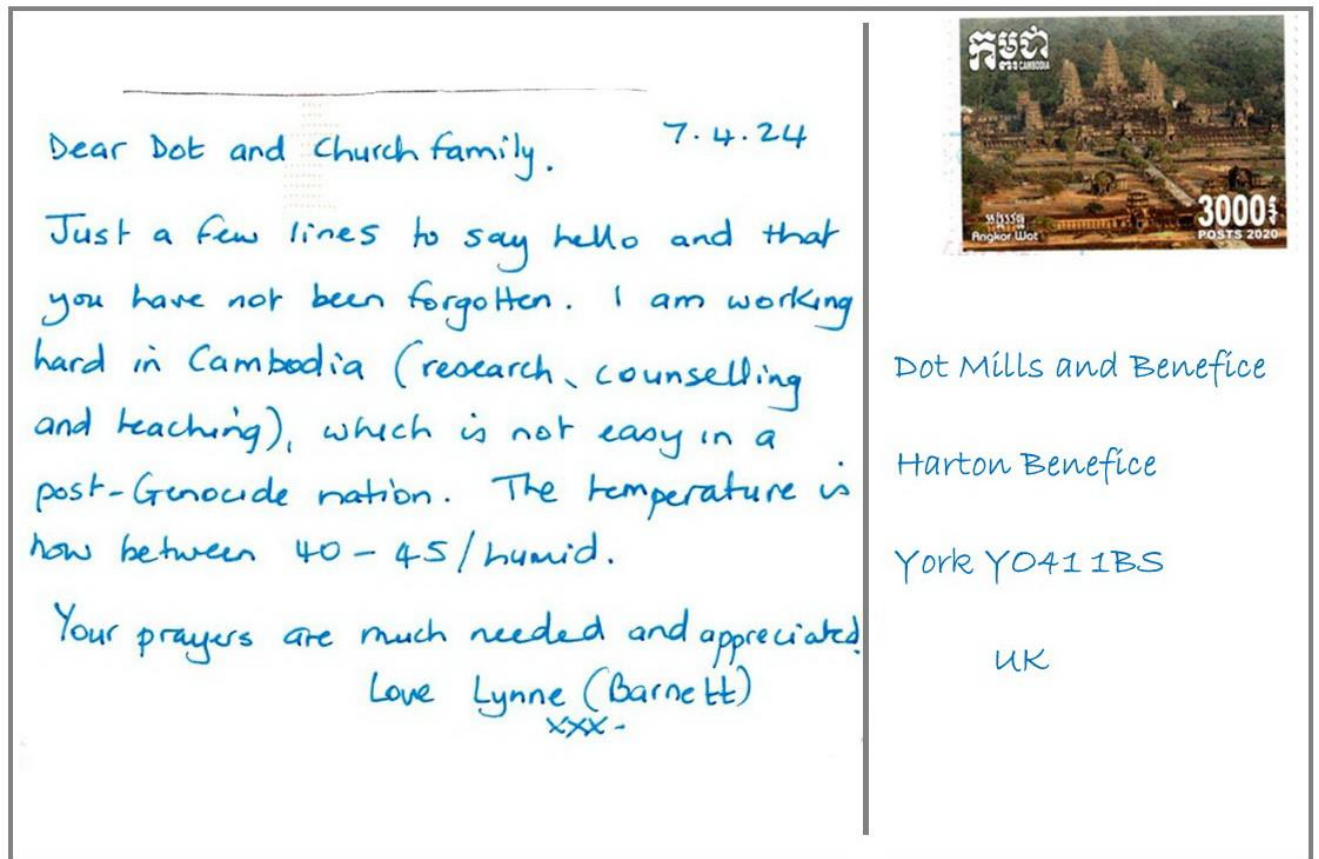 Dear Dot and Church family.
7.4.24
Just a few lines to say hello and that
you have not been forgotten. I am working
hard in Cambodia (research, counselling
and teaching), which is not easy in a
post-Genocide nation. The temperature is
now between 40-45/humid.
Your prayers are much needed and appreciated.
Love Lynne (Barnett)
xxx-
កម្ពុជា
CAMBODIA
3000៛
POSTS 2020
អង្គរវត្ត
Angkor Wat
Dot Mills and Benefice
Harton Benefice
York YO41 1BS
UK